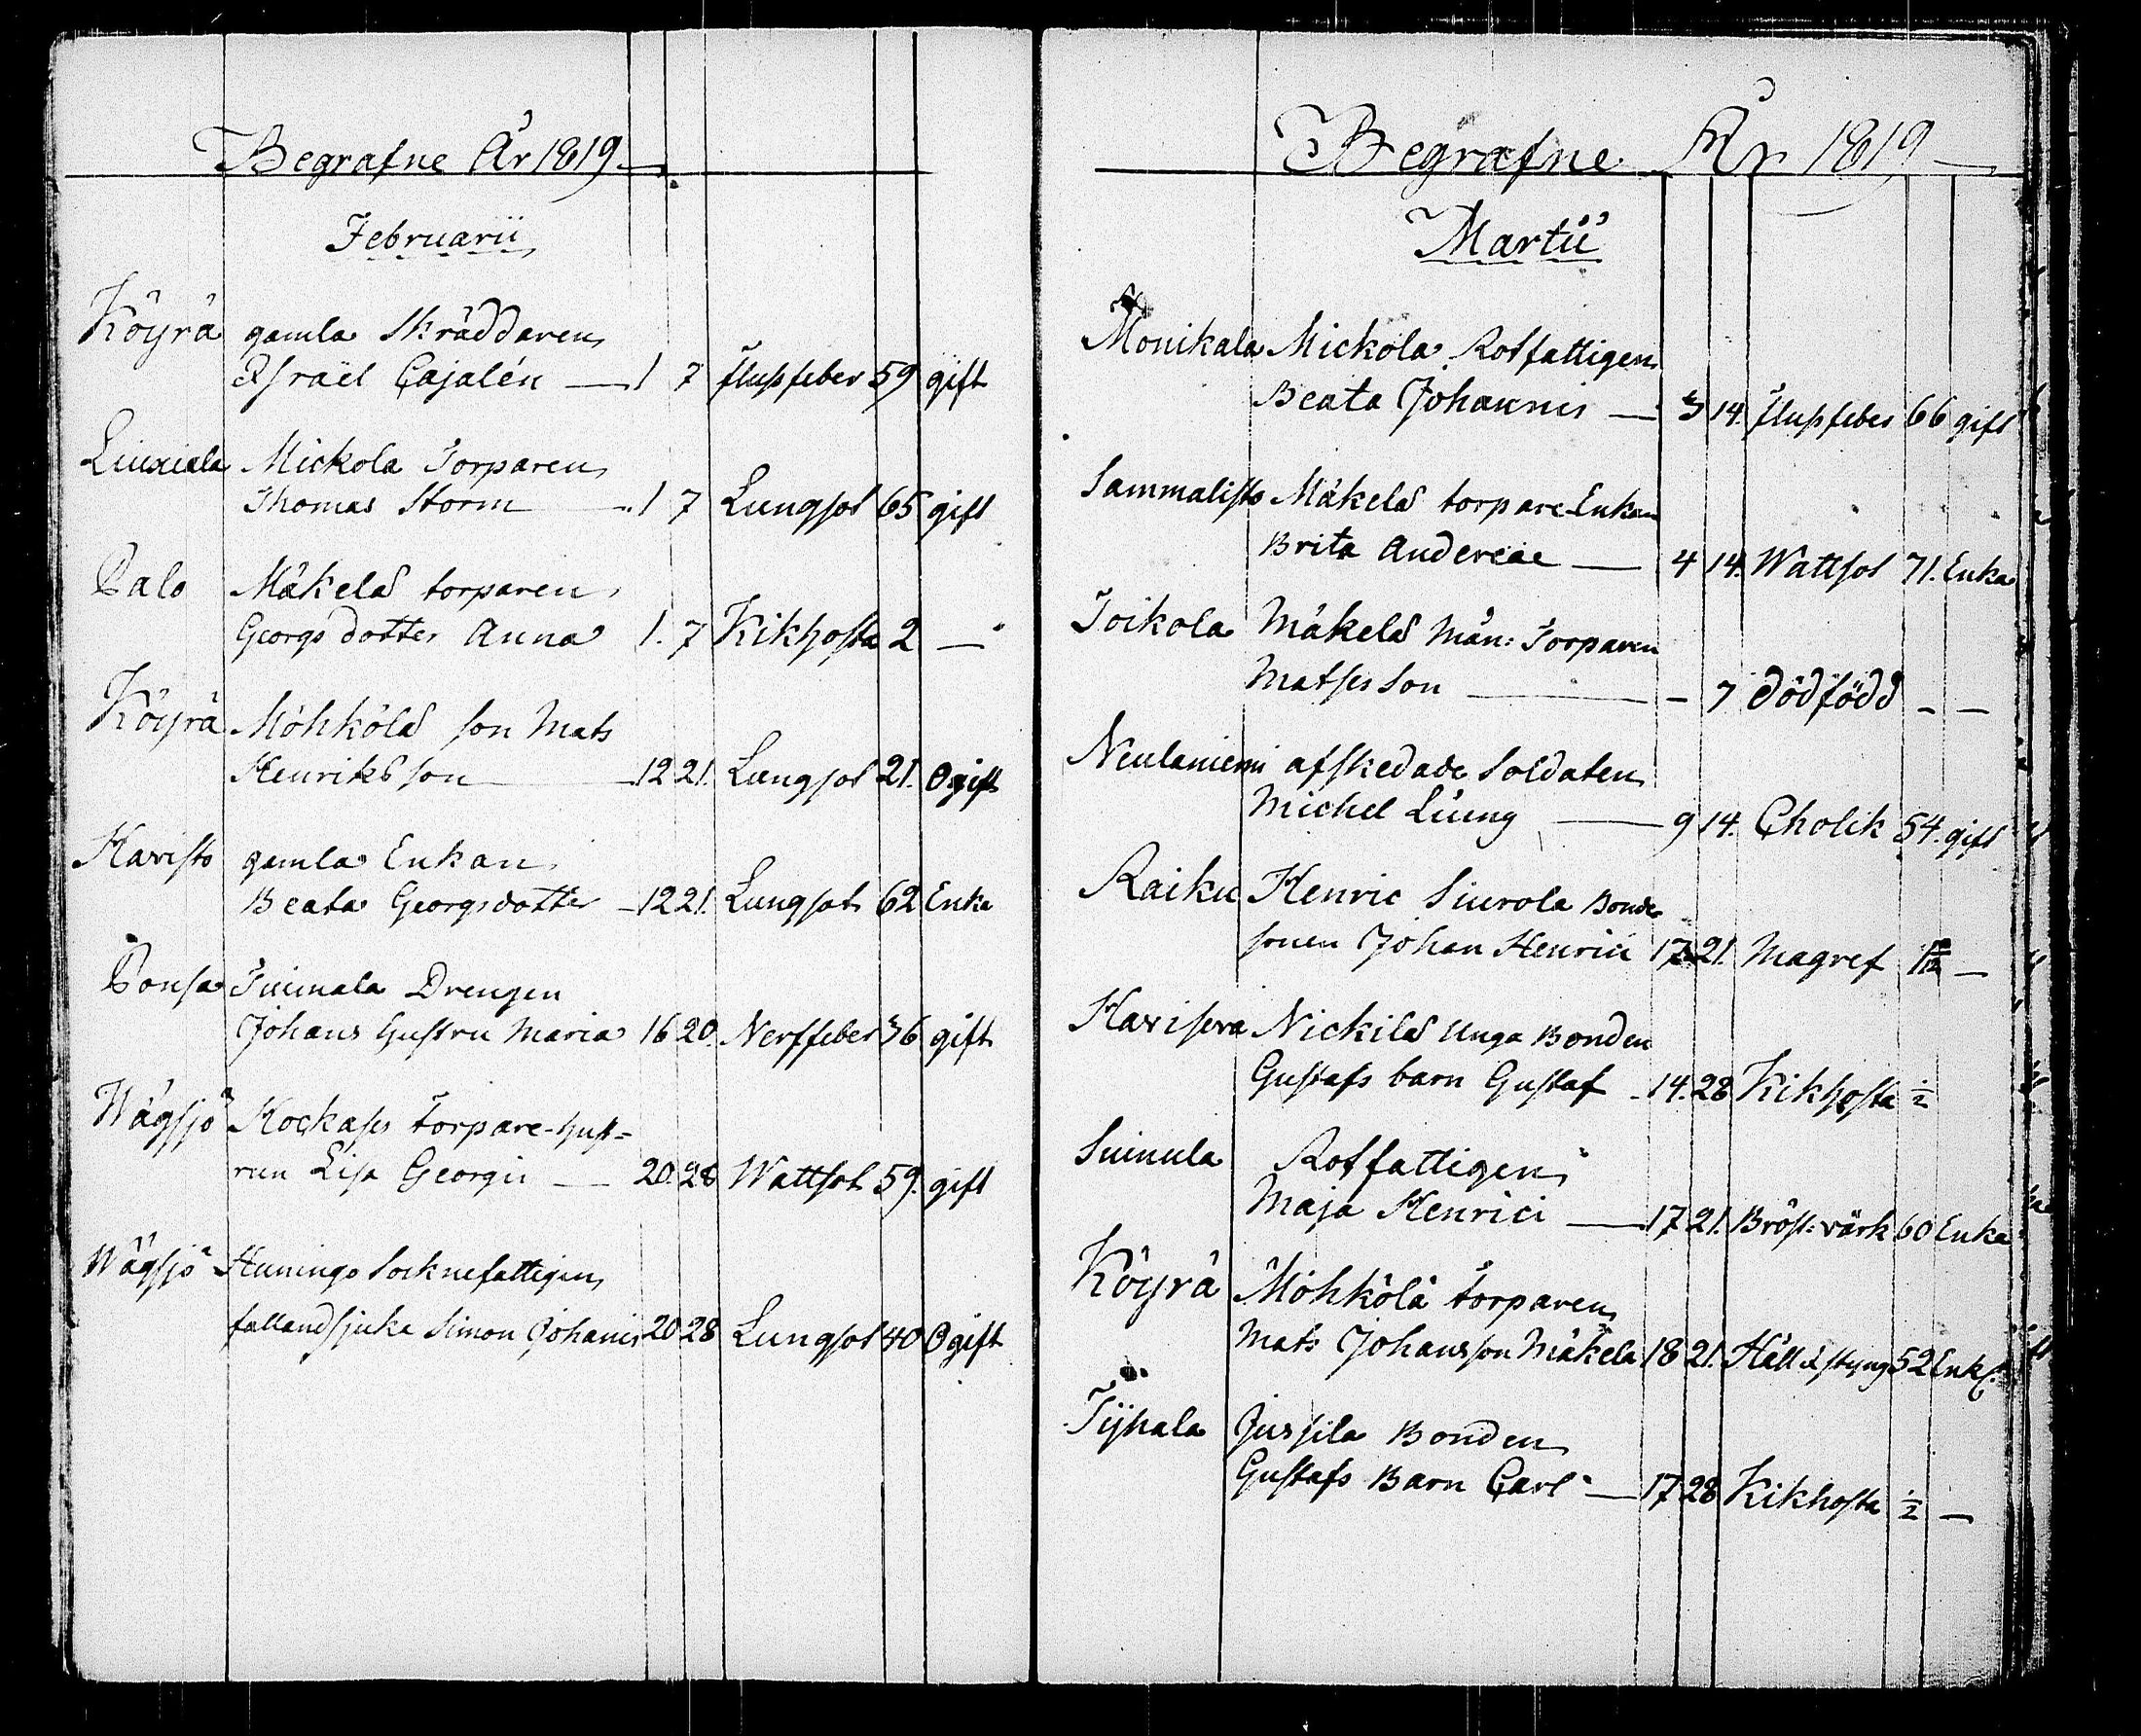 Begrafne År 1819
Februarii
Köyrä gamla Skräddaren
Israël Cajalén — 1 7 flussfeber 59 gift
Liuxiala Mickola Torparen
Thomas Storm — 1 7 Lungsot 65 gift
Palo Mäkelä torparen
Georgs dotter Anna 1. 7 Kikhosta 2 —
Köyrä Möhkölä son Mats
Henriksson — 12 21. Lungsot 21. Ogift
Haristo gamla Enkan
Beata Georgsdotter — 12 21. Lungsot 62 Enka
Ponsa Drengen
Johans hustru Maria 16 20. Nerffeber 36 gift
Wägsjö Kockases torpare-hust=
run Lisa Georgii — 20. 28 Wattsot 59. gift
Wägsjö Huningo Socknefattigen
fallandsjuka Simon Johannis 20 28 Lungsot 40 Ogift
Begrafne År 1819
Martii
Monikala Mickola Rotfattigen
Beata Johannis — 3 14. flussfeber 66 gift
Sammalisto Mäkelä torpare-Enkan
Brita Andereae — 4 14. Wattsot 71. Enka
Toikola Mäkelä Mån: Torparen
Matses Son — – 7 dödfödd – –
Neulaniemi afskedade Soldaten
Michel Liung — 9 14. Cholik 54. gift
Raiku Henric Siurola Bonde
sonen Johan Henrici 17 21. Magref —
Harisera Nickilä Unga Bonden
Gustafs barn Gustaf - 14. 28 Kikhosta ½
Suinula Rotfattigen
Maja Henrici — 17 21. Bröst-värk 60 Enka
Köyrä Möhkölä torparen
Mats Johansson Mäkelä 18 21. Håll & styng 52 Enkl.
Typala Jussila Bonden
Gustafs Barn Carl — 17 28 Kikhosta ½ —